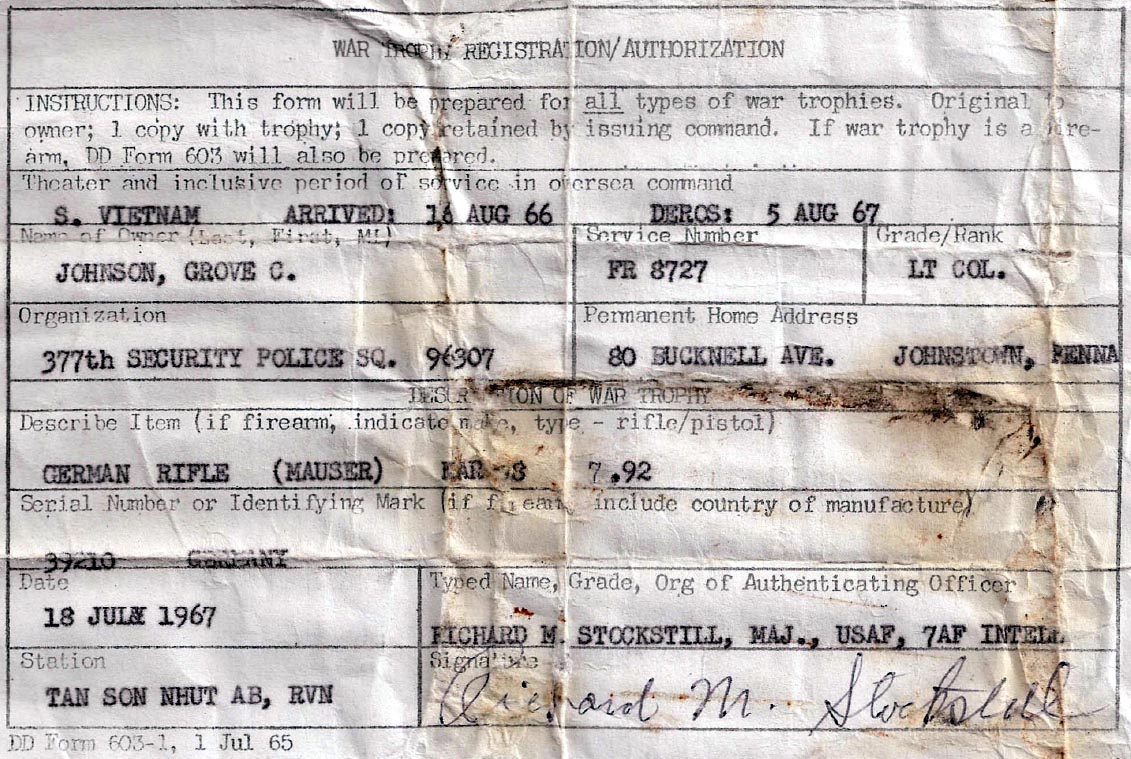 WAR TROPHY REGISTRATION/AUTHORIZATION
INSTRUCTIONS: This form will be prepared for all types of war trophies. Original to
owner; 1 copy with trophy; 1 copy retained by issuing command. If war trophy is a fire-
arm, DD Form 603 will also be prepared.
Theater and inclusive period of service in oversea command
S. VIETNAM ARRIVED: 16 AUG 66 DEROS: 5 AUG 67
Name of Owner (Last, First, MI) Service Number Grade/Rank
JOHNSON, GROVE C. FR 8727 LT COL.
Organization Permanent Home Address
377th SECURITY POLICE SQ. 96307 80 BUCKNELL AVE. JOHNSTOWN, PENNA
DESCRIPTION OF WAR TROPHY
Describe Item (if firearm, indicate make, type - rifle/pistol)
GERMAN RIFLE (MAUSER) 7.92
Serial Number or Identifying Mark (if firearm, include country of manufacture)
39210 GERMANY
Date Typed Name, Grade, Org of Authenticating Officer
18 JULY 1967 RICHARD M. STOCKSTILL, MAJ., USAF, 7AF INTELL
Station Signature
TAN SON NHUT AB, RVN Richard M. Stockstill
DD Form 603-1, 1 Jul 65